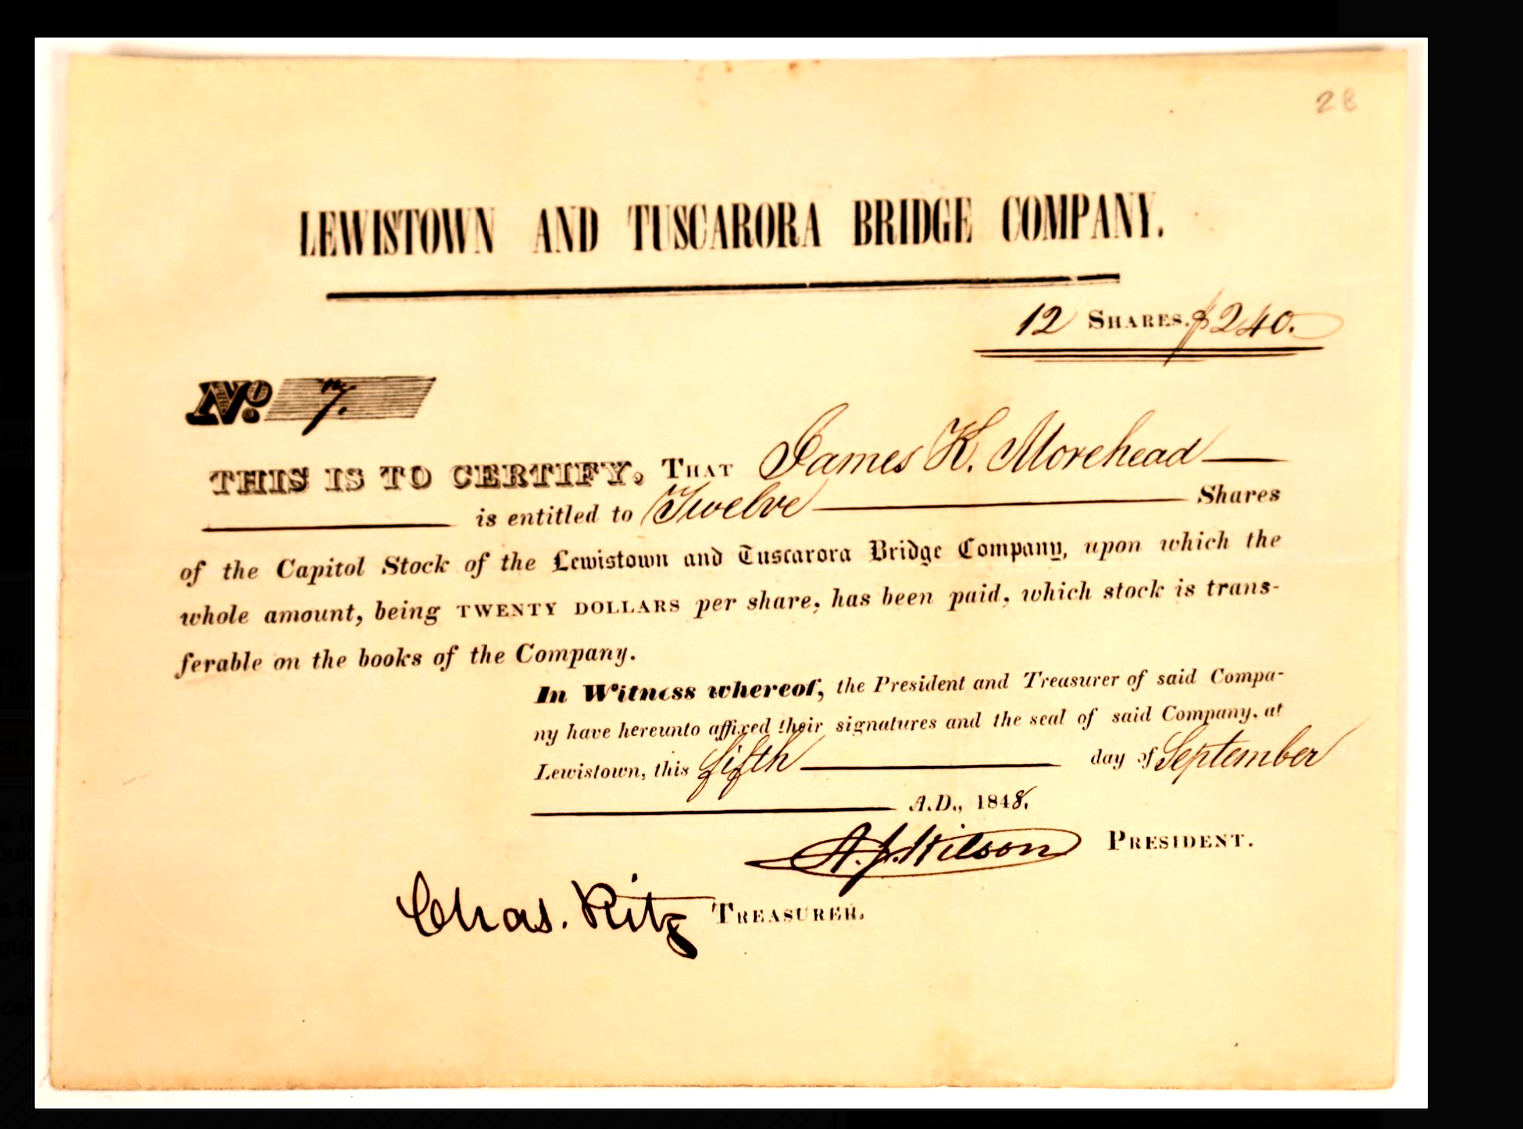 28
LEWISTOWN AND TUSCARORA BRIDGE COMPANY.
12 SHARES. $240.
No. 7.
THIS IS TO CERTIFY, THAT James K. Morehead
is entitled to Twelve Shares
of the Capitol Stock of the Lewistown and Tuscarora Bridge Company, upon which the
whole amount, being TWENTY DOLLARS per share, has been paid, which stock is trans-
ferable on the books of the Company.
In Witness whereof, the President and Treasurer of said Compa-
ny have hereunto affixed their signatures and the seal of said Company, at
Lewistown, this fifth day of September
A.D., 1848.
A. J. Wilson PRESIDENT.
Chas. Ritz TREASURER.